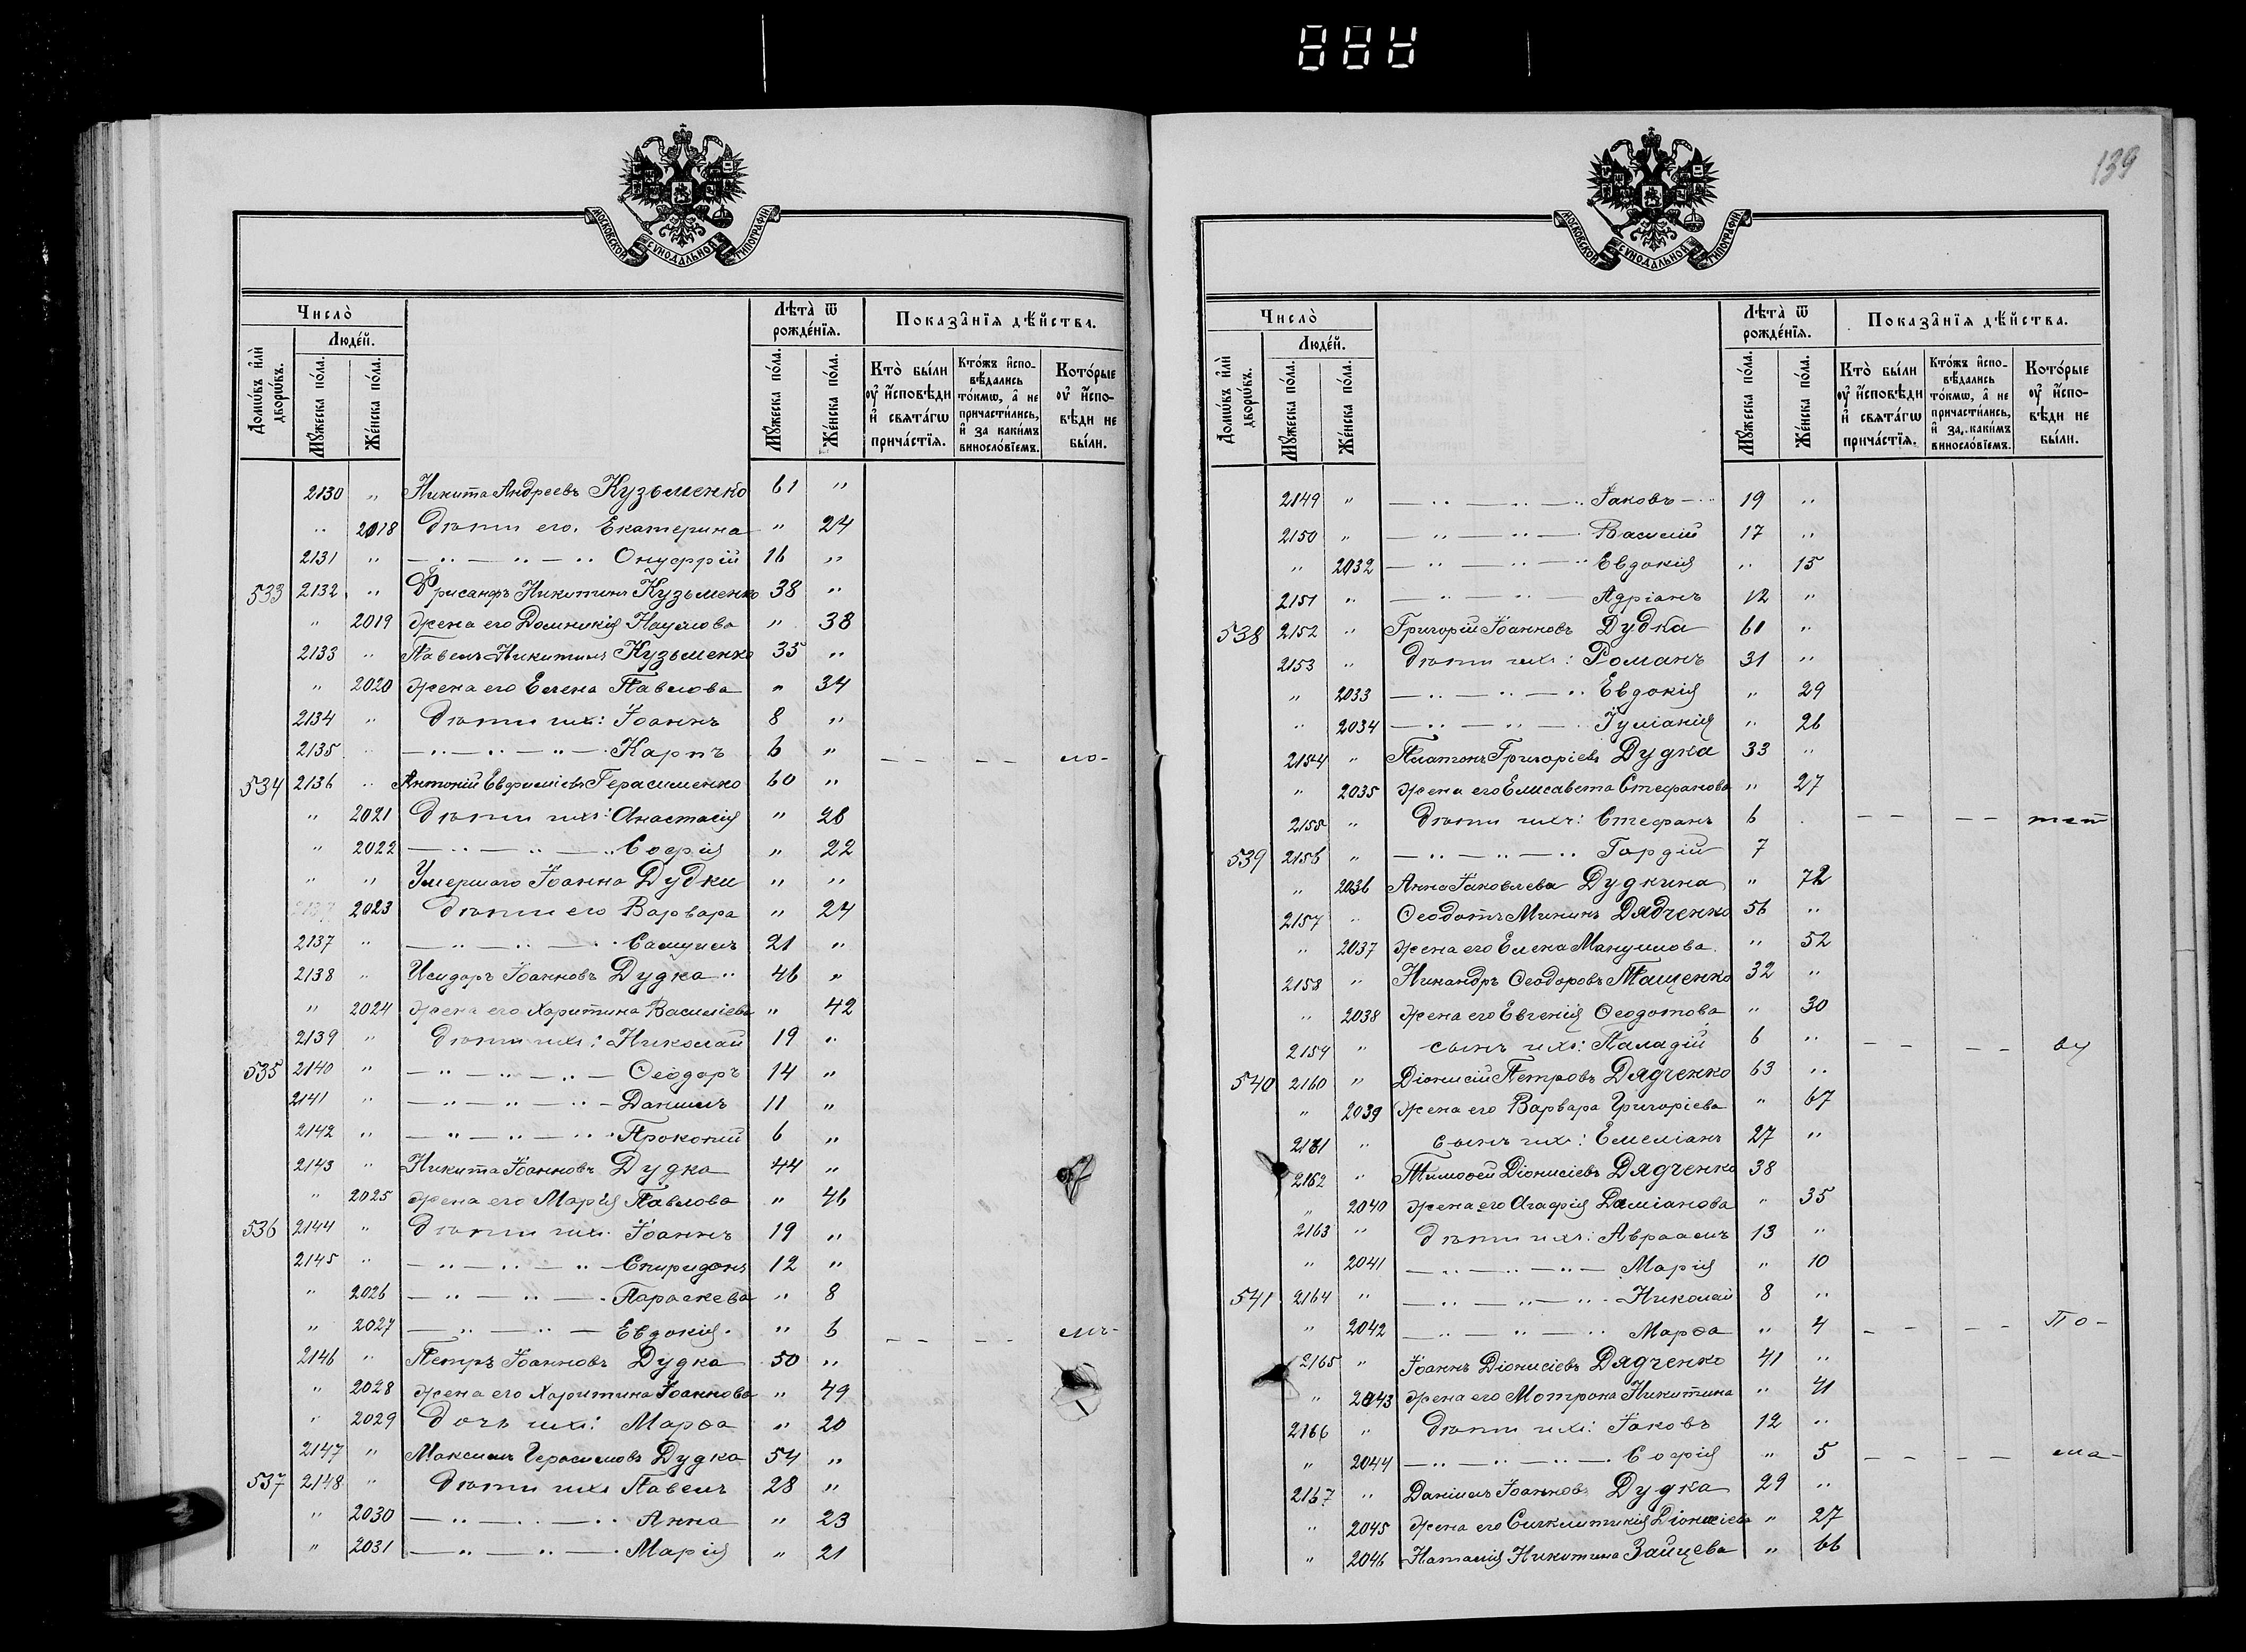 139
МОСКОВСКОЙ СѴНОДАЛЬНОЙ ТИПОГРАФІИ
Число̀
Людéй.
Лѣта̀ ѿ рождéнїѧ.
Показа̑нїѧ дѣ́йства.
Домѡ́въ и҆лѝ дворѡ́въ.
Мꙋ́жеска по́ла.
Жéнска по́ла.
Мꙋ́жеска по́ла.
Жéнска по́ла.
Кто̀ бы́ли ᲂу҆ и҆́сповѣди и҆ свѧта́гѡ прича́стїѧ.
Кто́жъ и҆спо-вѣ́дались то́кмѡ, а҆ не причасти́лись, и҆ за каки́мъ винословїемъ.
Кото́рые ᲂу҆ и҆́спо-вѣди не бы́ли.
2130 " Никита Андреевъ Кузьменко 61 "
" 2018 Дѣти его. Екатерина " 24
2131 " — " — " — " Онуфрій 16 "
533 2132 " Фрисанфъ Никитинъ Кузьменко 38 "
" 2019 Жена его Домникія Наумова " 38
2133 " Павелъ Никитинъ Кузьменко 35 "
" 2020 Жена его Елена Павлова " 34
2134 " Дѣти ихъ: Іоаннъ 8 "
2135 " — " — " — " — Карпъ 6 " — — — — ло-
534 2136 " Антоній Евфиміевъ Герасименко 60 "
" 2021 Дѣти ихъ: Анастасія " 26
" 2022 — " — " — " Софія " 22
" " Умершаго Іоанна Дудки " "
2137 2023 Дѣти его Варвара " 24
2137 " — " — " — " Самуилъ 21 "
2138 " Исидоръ Іоанновъ Дудка " 46 "
" 2024 Жена его Харитина Василіева " 42
2139 " Дѣти ихъ: Николай 19 "
535 2140 " — " — " — " — Ѳеодоръ 14 "
2141 " — " — " — " — Даніилъ 11 "
2142 " — " — " — " Прокопій 6 "
2143 " Никита Іоанновъ Дудка 44 "
" 2025 Жена его Марія Павлова " 46
536 2144 " Дѣти ихъ. Іоаннъ 19 "
2145 " — " — " — " — Спиридонъ 12 "
" 2026 — " — " — " Параскева " 8
" 2027 — " — " — Евдокія. " 6 — — — — лъ-
2146 " Петръ Іоанновъ Дудка 50 "
" 2028 Жена его Харитина Іоаннова " 49
" 2029 Дочь ихъ: Марѳа " 20
2147 " Максимъ Герасимовъ Дудка 54 "
537 2148 " Дѣти ихъ Павелъ 28 "
" 2030 — " — " — " Анна " 23
" 2031 — " — " — " Марія " 21
МОСКОВСКОЙ СѴНОДАЛЬНОЙ ТИПОГРАФІИ
Число̀
Людéй.
Лѣта̀ ѿ рождéнїѧ.
Показа̑нїѧ дѣ́йства.
Домѡ́въ и҆лѝ дворѡ́въ.
Мꙋ́жеска по́ла.
Жéнска по́ла.
Мꙋ́жеска по́ла.
Жéнска по́ла.
Кто̀ бы́ли ᲂу҆ и҆́сповѣди и҆ свѧта́гѡ прича́стїѧ.
Кто́жъ и҆спо-вѣ́дались то́кмѡ, а҆ не причасти́лись, и҆ за каки́мъ винословїемъ.
Кото́рые ᲂу҆ и҆́спо-вѣди не бы́ли.
2149 " — " — " — " Іаковъ — " 19 "
2150 " — " — " — Василій 17 "
" 2032 — " — " — " Евдокія " 15
2151 " — " — " — Адріанъ 12 "
538 2152 " Григорій Іоанновъ Дудка 61 "
2153 " Дѣти ихъ: Романъ 31 "
" 2033 — " — " — " Евдокія " 29
" 2034 — " — " — " Іуліанія " 26
2154 " Платонъ Григоріевъ Дудка 33 "
" 2035 Жена его Елисавета Стефанова " 27
2155 " Дѣти ихъ: Стефанъ 6 . — — — — тет
539 2156 " — " — " — " Гордій 7
" 2036 Анна Іаковлева Дудкина " 72
2157 " Ѳеодотъ Мининъ Дядченко 56 "
" 2037 Жена его Елена Мануилова. " 52
2158 " Никандръ Ѳеодоровъ Тащенко 32 "
" 2038 Жена его Евгенія Ѳеодотова " 30
2159 " сынъ ихъ: Паладій 6 " — — — — ву
540 2160 " Діонисій Петровъ Дядченко 63 "
" 2039 Жена его Варвара Григоріева " 67
2161 " сынъ ихъ: Емеліанъ 27 "
2162 " Тимоѳей Діонисіевъ Дядченко 38
" 2040 Жена его Агафія Даміанова " 35
2163 " Дѣти ихъ: Авраамъ 13 "
" 2041 — " — " — " — Марія " 10
541 2164 " — " — " — " Николай 8 "
" 2042 — " — " — " Марѳа " 4 — — — — По-
2165 " Іоаннъ Діонисіевъ Дядченко 41 "
" 2043 Жена его Мотрона Никитина " 41
2166 " Дѣти ихъ: Іаковъ 12 "
" 2044 — " — " — " — Софія " 5 — — — — ма-
2167 " Даніилъ Іоанновъ Дудка 29 "
" 2045 Жена его Сигклитикія Діонисіева " 27
" 2046 Наталія Никитина Зайцева " 66